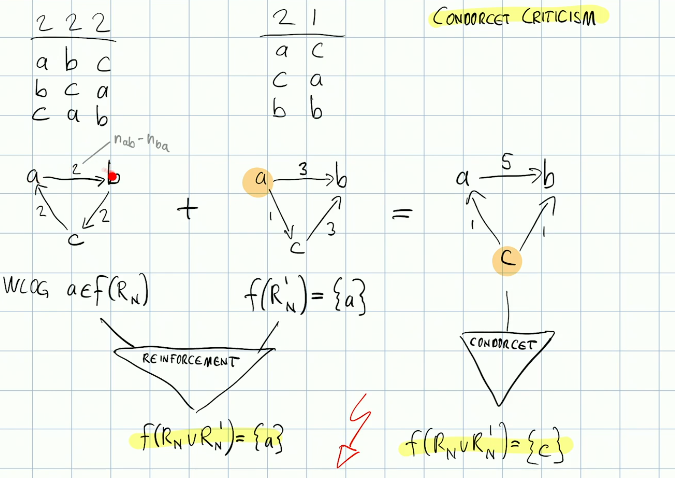 CONDORCET CRITICISM
2 2 2
a b c
b c a
c a b
2 1
a c
c a
b b
n_ab - n_ba
a 2 b
2 2
c
+
a 3 b
1 3
c
=
a 5 b
1 1
c
WLOG a∈f(R_N)
f(R_N')={a}
REINFORCEMENT
CONDORCET
f(R_N∪R_N')={a}
f(R_N∪R_N')={c}